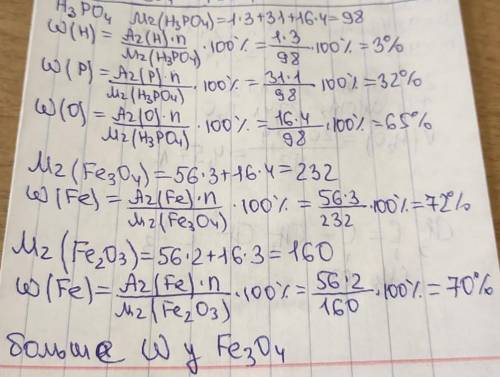 H₃PO₄ Mr(H₃PO₄)=1·3+31+16·4=98
W(H)=Ar(H)·n/Mr(H₃PO₄)·100%=1·3/98·100%=3%
W(P)=Ar(P)·n/Mr(H₃PO₄)·100%=31·1/98·100%=32%
W(O)=Ar(O)·n/Mr(H₃PO₄)·100%=16·4/98·100%=65%
Mr(Fe₃O₄)=56·3+16·4=232
W(Fe)=Ar(Fe)·n/Mr(Fe₃O₄)·100%=56·3/232·100%=72%
Mr(Fe₂O₃)=56·2+16·3=160
W(Fe)=Ar(Fe)·n/Mr(Fe₂O₃)·100%=56·2/160·100%=70%
больше W у Fe₃O₄